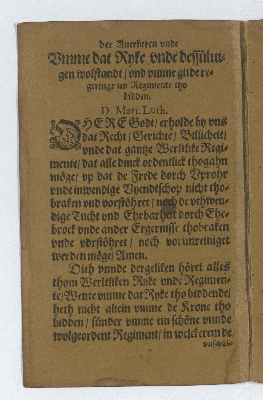 der Auerheren vnde
Vmme dat Ryke vnde dessülui-
gen wolstandt / vnd vmme gude re-
geringe im Regimente tho
bidden.
D. Mart. Luth.
HERE Godt / erholde by vns
dat Recht / Gerichte / Billicheit /
vnde dat gantze Werltlike Regi-
mente / dat alle dinck ordentlick thogahn
möge / vp dat de Frede dorch Vprohr
vnde inwendige Vyendtschop nicht tho-
braken vnd vorstöhret / noch de vthwen-
dige Tucht vnd Ehrbarheit dorch Ehe-
brock vnde ander Ergernisse thobraken
vnde vorstöhret / noch vorunreiniget
werden möge / Amen.
Dith vnnde dergeliken höret alles
thom Werltliken Ryke vnde Regimen-
te / Wente vmme dat Ryke tho biddende /
heth nicht allein vmme de Krone tho
bidden / sünder vmme ein schöne vnnde
wolgeordent Regiment / in welckerem de